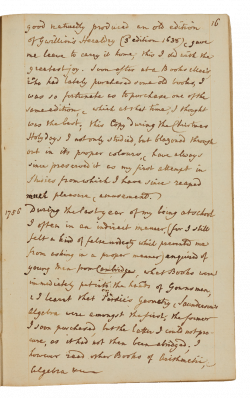 16
good naturedly produced an old edition
of Gwillim's Heraldry (3d edition 1638), gave
me leave to carry it home, this I did with the
greatest joy. Soon after at a Booksellers
who had lately purchased some old books, I
was so fortunate as to purchase one of the
same edition, which at that time I thought
was the best; this Copy during the Christmas
Holydays I not only studied, but blazoned through
out in its proper colours, & have always
since preserved it as my first attempt in
studies from which I have since reaped
much pleasure & amusement.
1756 During the last year of my being at school
I often in an indirect manner, (for I still
felt a kind of false modesty which prevented me
from asking in a proper manner) enquired of
young Men from Cambridge, what Books were
immediately put into the hands of Gownsmen
& I learnt that Euclid's Geometry, & Saunderson's
Algebra were amongst the first, the former
I soon purchased but the latter I could not pro-
cure, as it had not then been abridged, I
however read other Books of Arithmetic,
Algebra